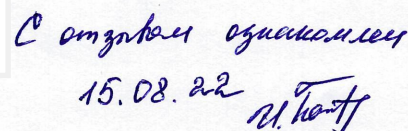 С отзывом ознакомлен
15.08.22